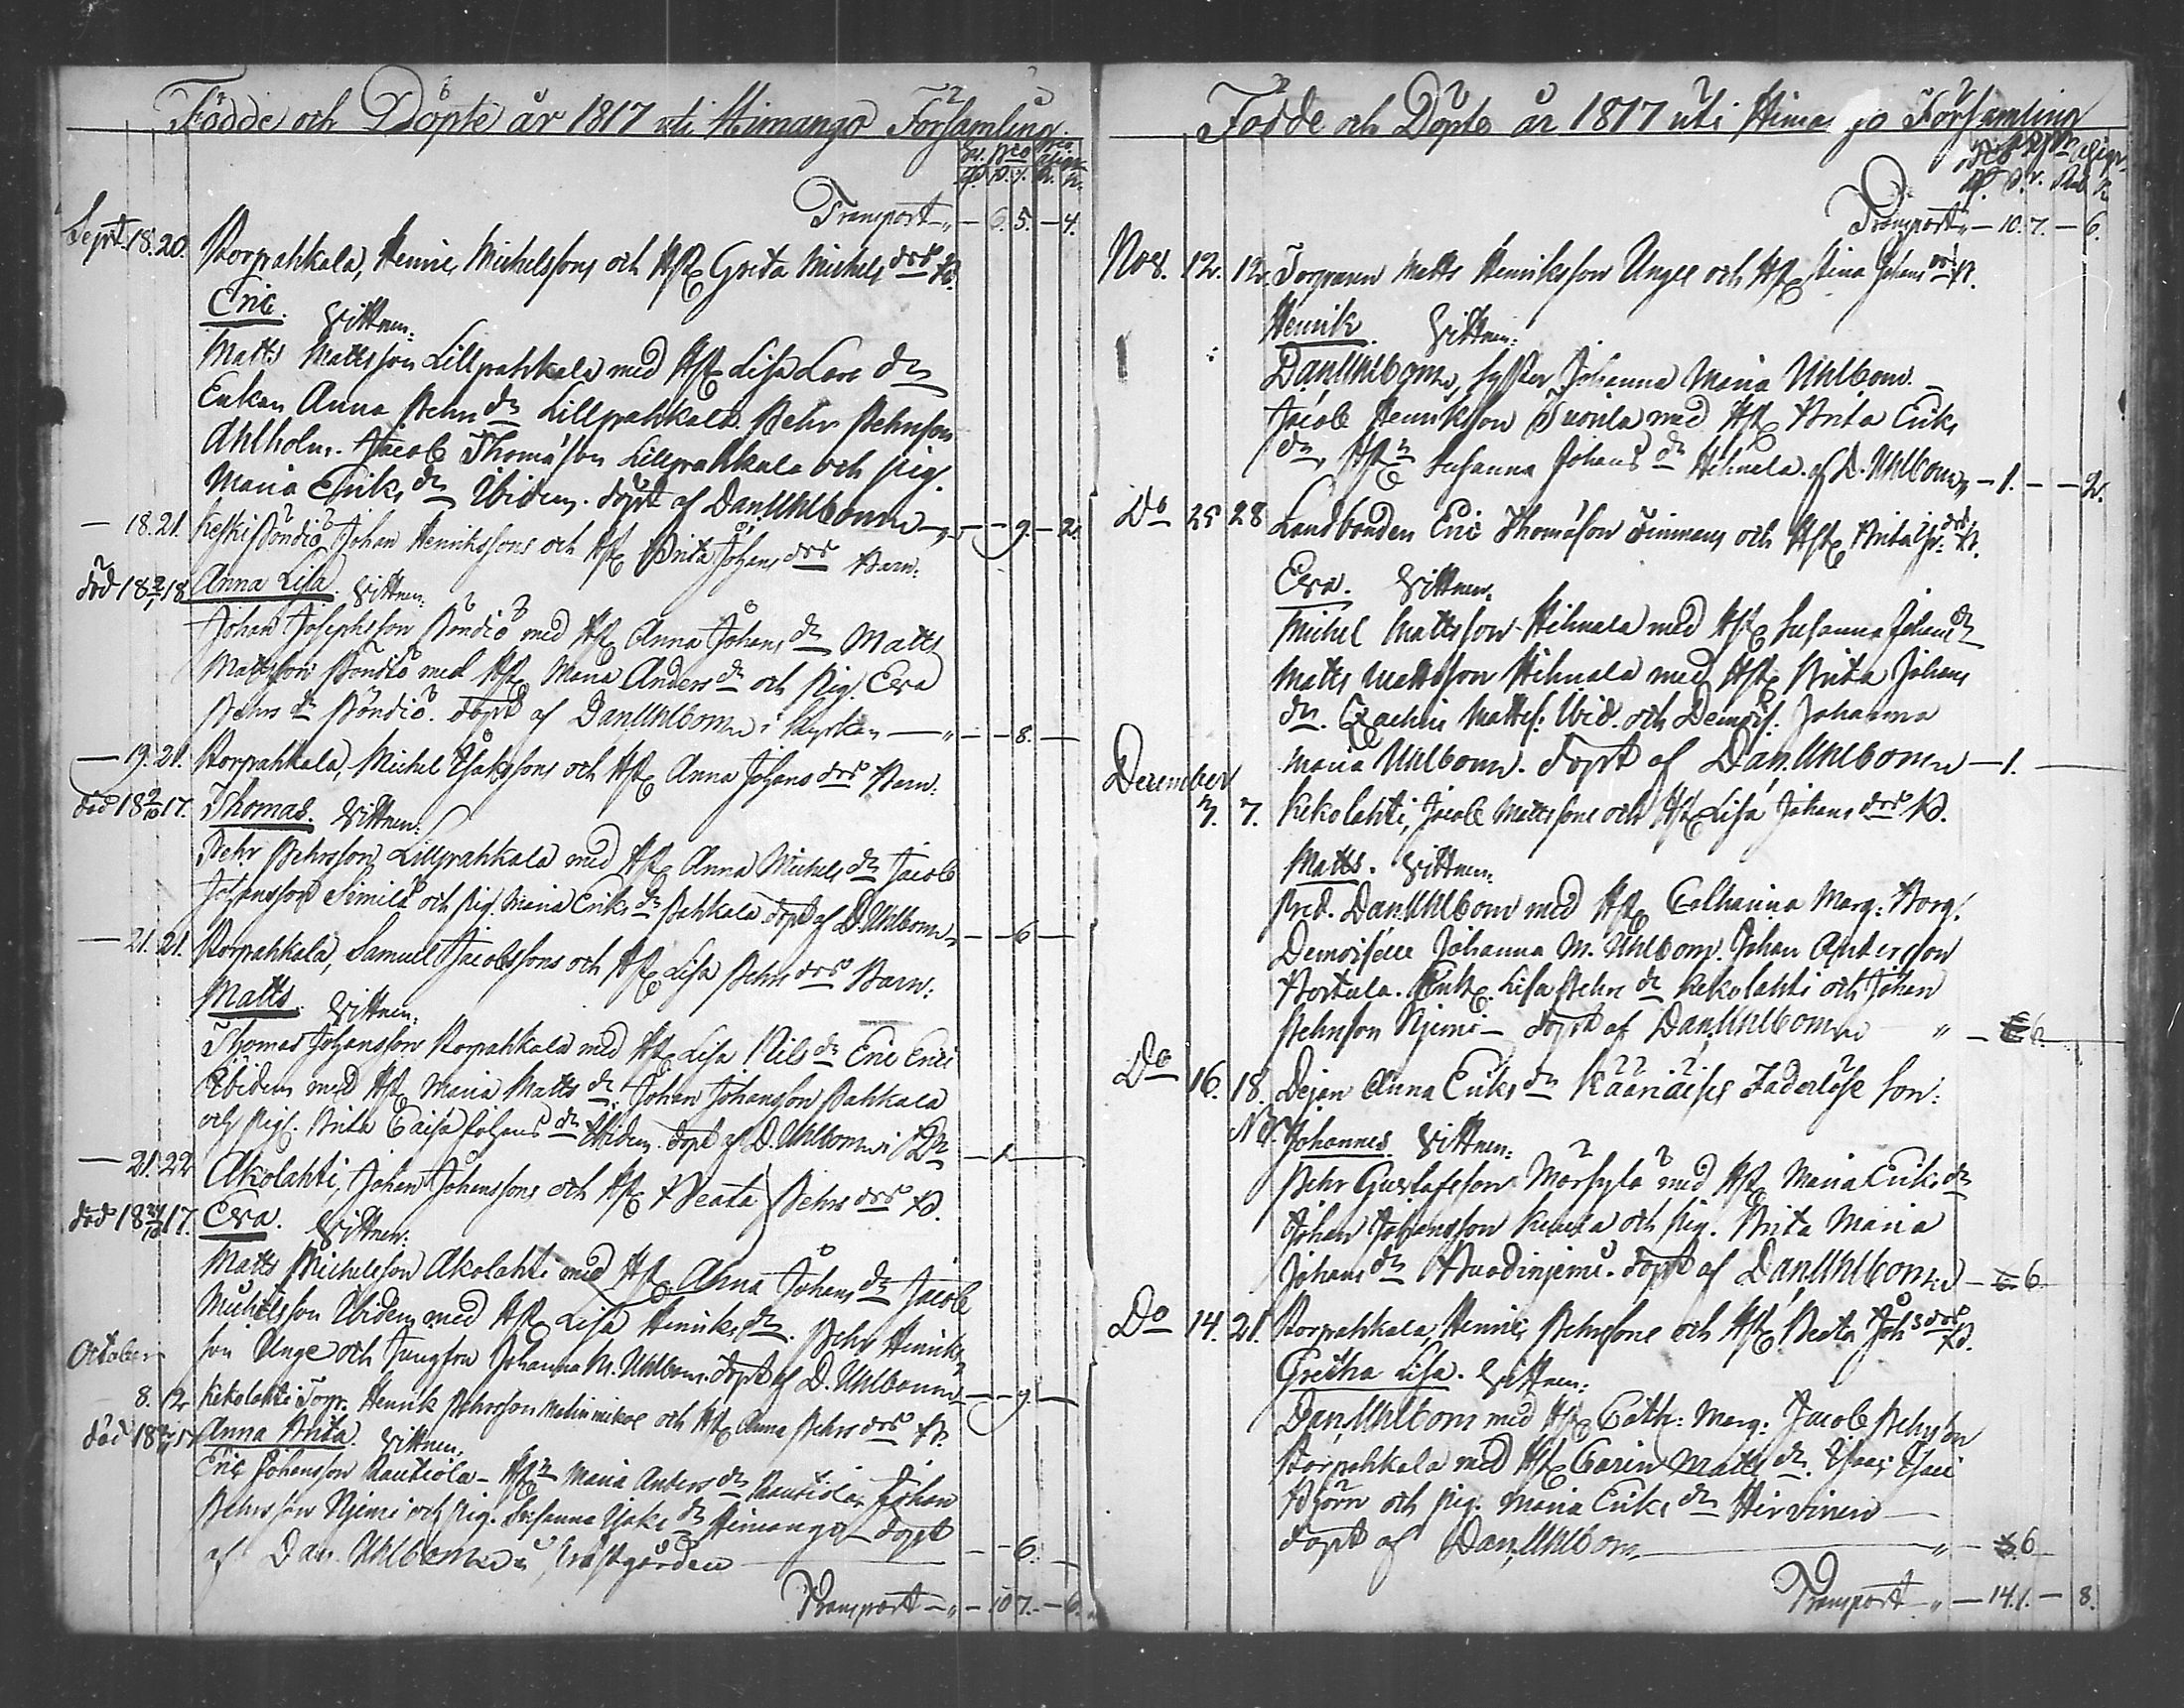 Födde och Döpte år 1817 uti Himango Församling.
Transport „ — 6. 5. — 4.
Sept. 18. 20. Storpahkala, Henric Michelssons och Hst. Greta Michels dotr B.
Eric. Vittnen:
Matts Mattsson Lillpahkala med Hst. Lisa Lars dr
Enkan Anna Pehrs dr Lillpahkala. Pehr Pehrsson
Ahlholm. Jacob Thomasson Lillpahkala och pig.
Maria Eriks dr Ibidem. döpt af Dan. Uhlbom — „ — 9. — 2.
— 18. 21. Keski Pöndiö Johan Henrikssons och Hst. Brita Johans dotr Barn:
död 18 2/1 18. Anna Lisa. Vittnen:
Johan Josephsson Pöndiö med Hst. Anna Johans dr Matts
Mattsson Pöndiö med Hst. Maria Anders dr och pig. Eva
Pehrs dr Pöndiö. döpt af Dan. Uhlbom i Kyrkan — „ — 8. —
— 19. 21. Storpahkala, Michel Isakssons och Hst. Anna Johans dotr Barn:
död 18 17. Thomas. Vittnen:
Pehr Pehrsson Lillpahkala med Hst. Anna Michels dr Jacob
Johansson Similä och pig. Maria Eriks dr Pahkala döpt af D. Uhlbom „ — 6 —
— 21. 21. Storpahkala, Samuel Jacobssons och Hst. Lisa Pehrs dotr Barn:
Matts. Vittnen:
Thomas Johansson Storpahkala med Hst. Lisa Nils dr Eric Erici
Ibidem med Hst. Maria Matts dr. Johan Johansson Pahkala
och pig. Brita Caisa Johans dr Ibidem. döpt af D. Uhlbom i Do — 1. —
— 21. 22 Akolahti, Johan Johanssons och Hst. Beata Pehrs dotr B.
död 18 17. Eva. Vittnen:
Matts Michelsson Akolahti med Hst. Anna Johans dr Jacob
Michelsson Ibidem med Hst. Lisa Henriks dr. Pehr Henriks
son Unge och Jungfru Johanna M. Uhlbom. döpt af D. Uhlbom — 9. —
October
8. 12 Kekolahti Torp. Henrik Pehrsson och Hst. Anna Pehrs dotr B.
död 18 17 Anna Brita. Vittnen:
Eric Johansson Rautiola — Hst. Maria Anders dr Rautiola, Johan
Pehrsson Njemi och pig. Susanna Isaks dr Himango — döpt
af Dan. Uhlbom i Prästgården — — 6. —
Transport — „ — 10 7. — 6.
Födde och Döpte år 1817 uti Himango Församling
Transport „ — 10. 7. — 6.
Nov. 12. 12. Torparen Matts Henriksson Unges och Hst. Stina Johans dotr B.
Henrik. Vittnen:
Dan. Uhlbom, Syster Johanna Maria Uhlbom. —
Jacob Henriksson Tuorila med Hst. Brita Eriks
dr, Hst. Susanna Johans dr Hihnala. af D. Uhlbom „ — 1. — — 2.
Do 25 28 Landbonden Eric Thomasson Finmans och Hst. Brita dotr B.
Eva. Vittnen:
Michel Mattsson Hihnala med Hst. Susanna Johans dr
Matts Mattsson Hihnala med Hst. Brita Johans
dr. Zachris Mattss: Ibid. och Demois. Johanna
Maria Uhlbom. döpt af Dan. Uhlbom — 1. —
December
7. 7. Kekolahti, Jacob Mattssons och Hst. Lisa Johans dotr B.
Matts. Vittnen:
Pred. Dan. Uhlbom med Hst. Catharina Marg: Borg.
Demoiselle Johanna M. Uhlbom. Johan Andersson
Portula. Enk. Lisa Pehrs dr Kekolahti och Johan
Pehrsson Njemi — döpt af Dan. Uhlbom „ — 6. —
Do 16. 18. Dejan Anna Eriks dr Kääriäises Faderlöse son:
NB. Johannes. Vittnen:
Pehr Gustafsson Morsylä med Hst. Maria Eriks dr
Johan Johansson och pig. Brita Maria
Johans dr döpt af Dan. Uhlbom — 6
Do 14. 21. Storpahkala, Henric Pehrssons och Hst. Beata Johs dotr B.
Gretha Lisa. Vittnen:
Dan. Uhlbom med Hst. Cath: Marg: Jacob Pehrsson
Storpahkala med Hst. Carin Matts dr. Isac Isaci
Björn och pig. Maria Eriks dr Hirvinen —
döpt af Dan. Uhlbom — „ — 6
Transport „ — 14. 1. — 8.